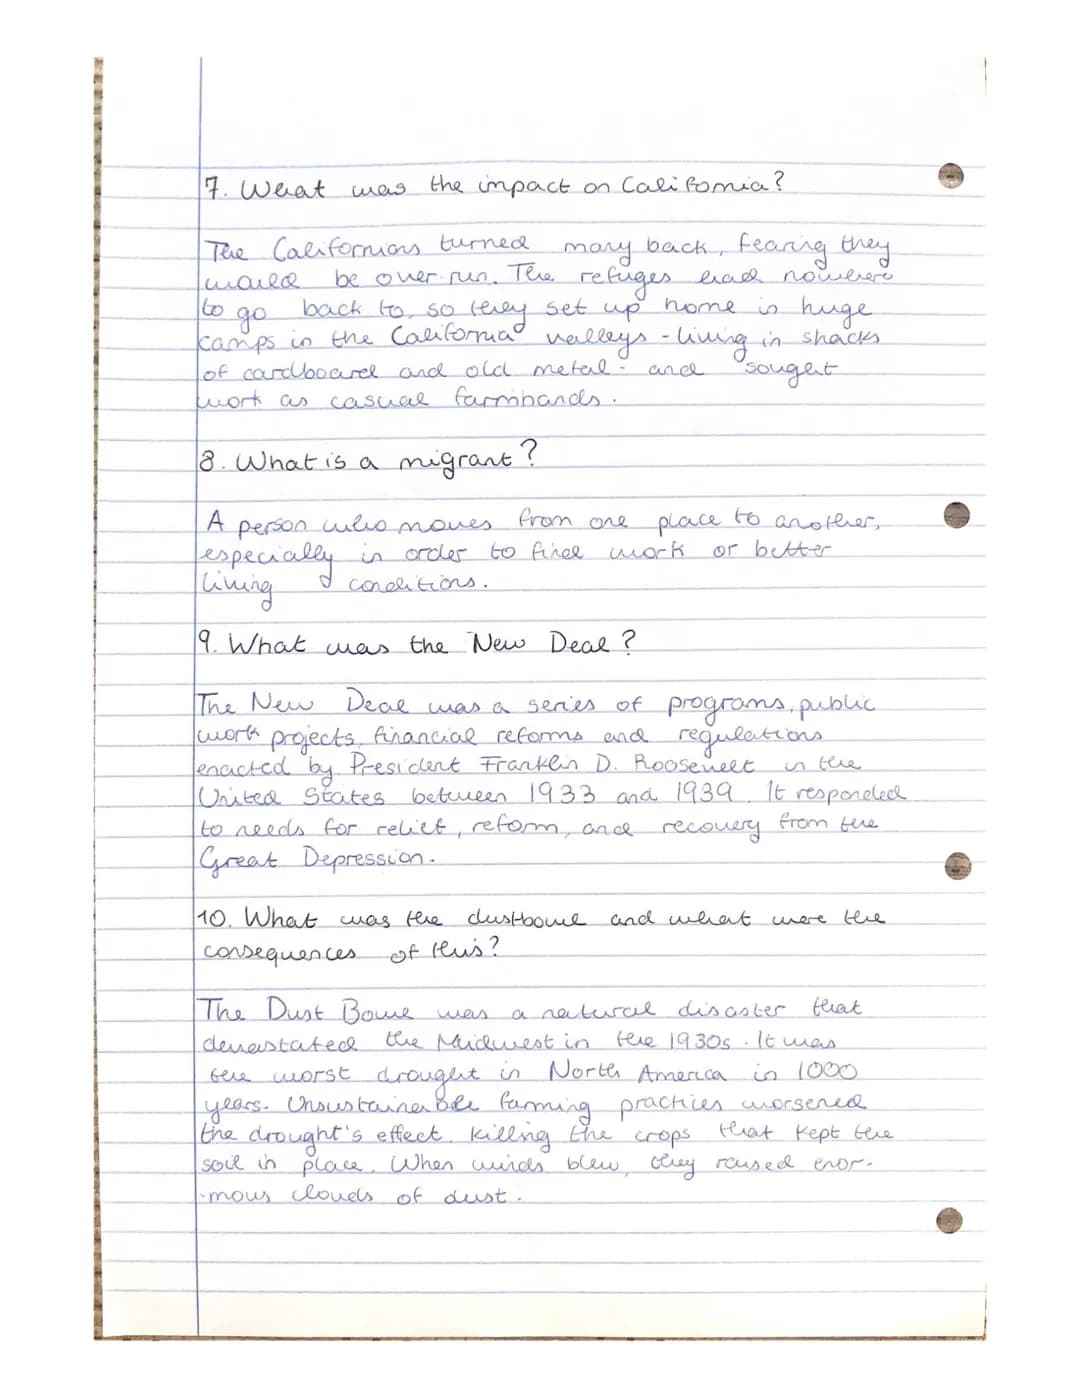 7. What was the impact on California?
The Californians turned many back, fearing they
would be over-run. The refuges had nowhere
to go back to, so they set up home in huge
camps in the California valleys - living in shacks
of cardboard and old metal - and sought
work as casual farmhands.
8. What is a migrant?
A person who moves from one place to another,
especially in order to find work or better
living conditions.
9. What was the New Deal?
The New Deal was a series of programs, public
work projects, financial reforms and regulations
enacted by President Franklin D. Roosevelt in the
United States between 1933 and 1939. It responded
to needs for relief, reform, and recovery from the
Great Depression.
10. What was the dustbowl and what were the
consequences of this?
The Dust Bowl was a natural disaster that
devastated the Midwest in the 1930s. It was
the worst drought in North America in 1000
years. Unsustainable farming practices worsened
the drought's effect, killing the crops that kept the
soil in place. When winds blew, they raised enor-
-mous clouds of dust.